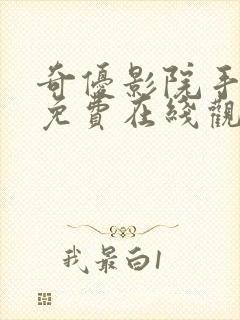 奇優影院手
免費在綫觀
我最白1